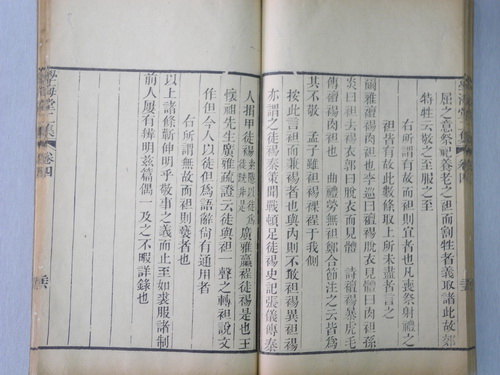 學海堂二集 卷四
屈之意祭祀養老之袒而割牲者義取諸此故郊
特牲云敬之至服之至
右所謂有故而袒則宜者也凡喪祭射禮之
袒皆有故此數條取上所未盡者言之
爾雅襢裼肉袒也李巡曰襢裼脫衣見體曰肉袒孫
炎曰袒去裼衣郭曰脫衣而見體 詩襢裼暴虎毛
傳襢裼肉袒也 曲禮勞無袒鄭合簡注之云皆爲
其不敬 孟子雖袒裼裸裎于我側
按此言袒而兼裼者也與內則不敢袒裼異袒裼
亦謂之徒裼秦策聞戰頓足徒裼史記張儀傳秦
人捐甲徒裼
廣雅臝裎徒裼是也王
懷祖先生廣雅疏證云徒與袒一聲之轉袒說文
作但今人以徒但爲語辭尙有通用者
右所謂無故而袒則褻者也
以上諸條斬伸明乎敬事之義而止至如裘服諸制
前人屢有專明茲篇偶一及之不暇詳錄也
學海堂二集 卷四